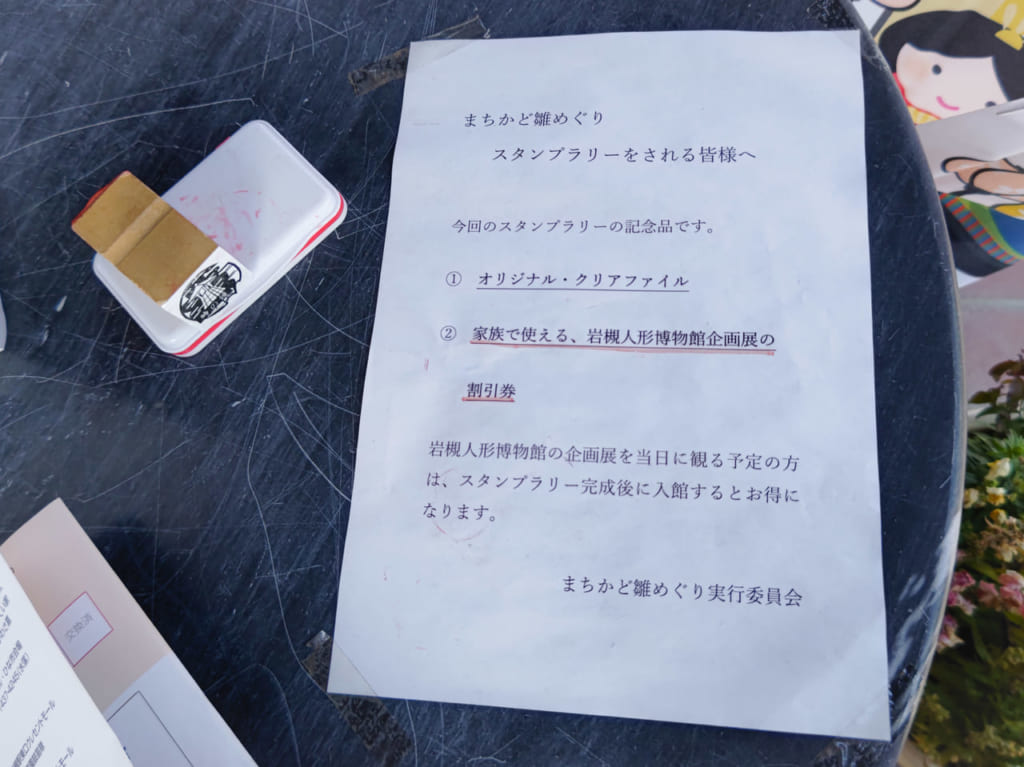 まちかど雛めぐり
スタンプラリーをされる皆様へ
今回のスタンプラリーの記念品です。
① オリジナル・クリアファイル
② 家族で使える、岩槻人形博物館企画展の
割引券
岩槻人形博物館の企画展を当日に観る予定の方
は、スタンプラリー完成後に入館するとお得に
なります。
まちかど雛めぐり実行委員会
交換済